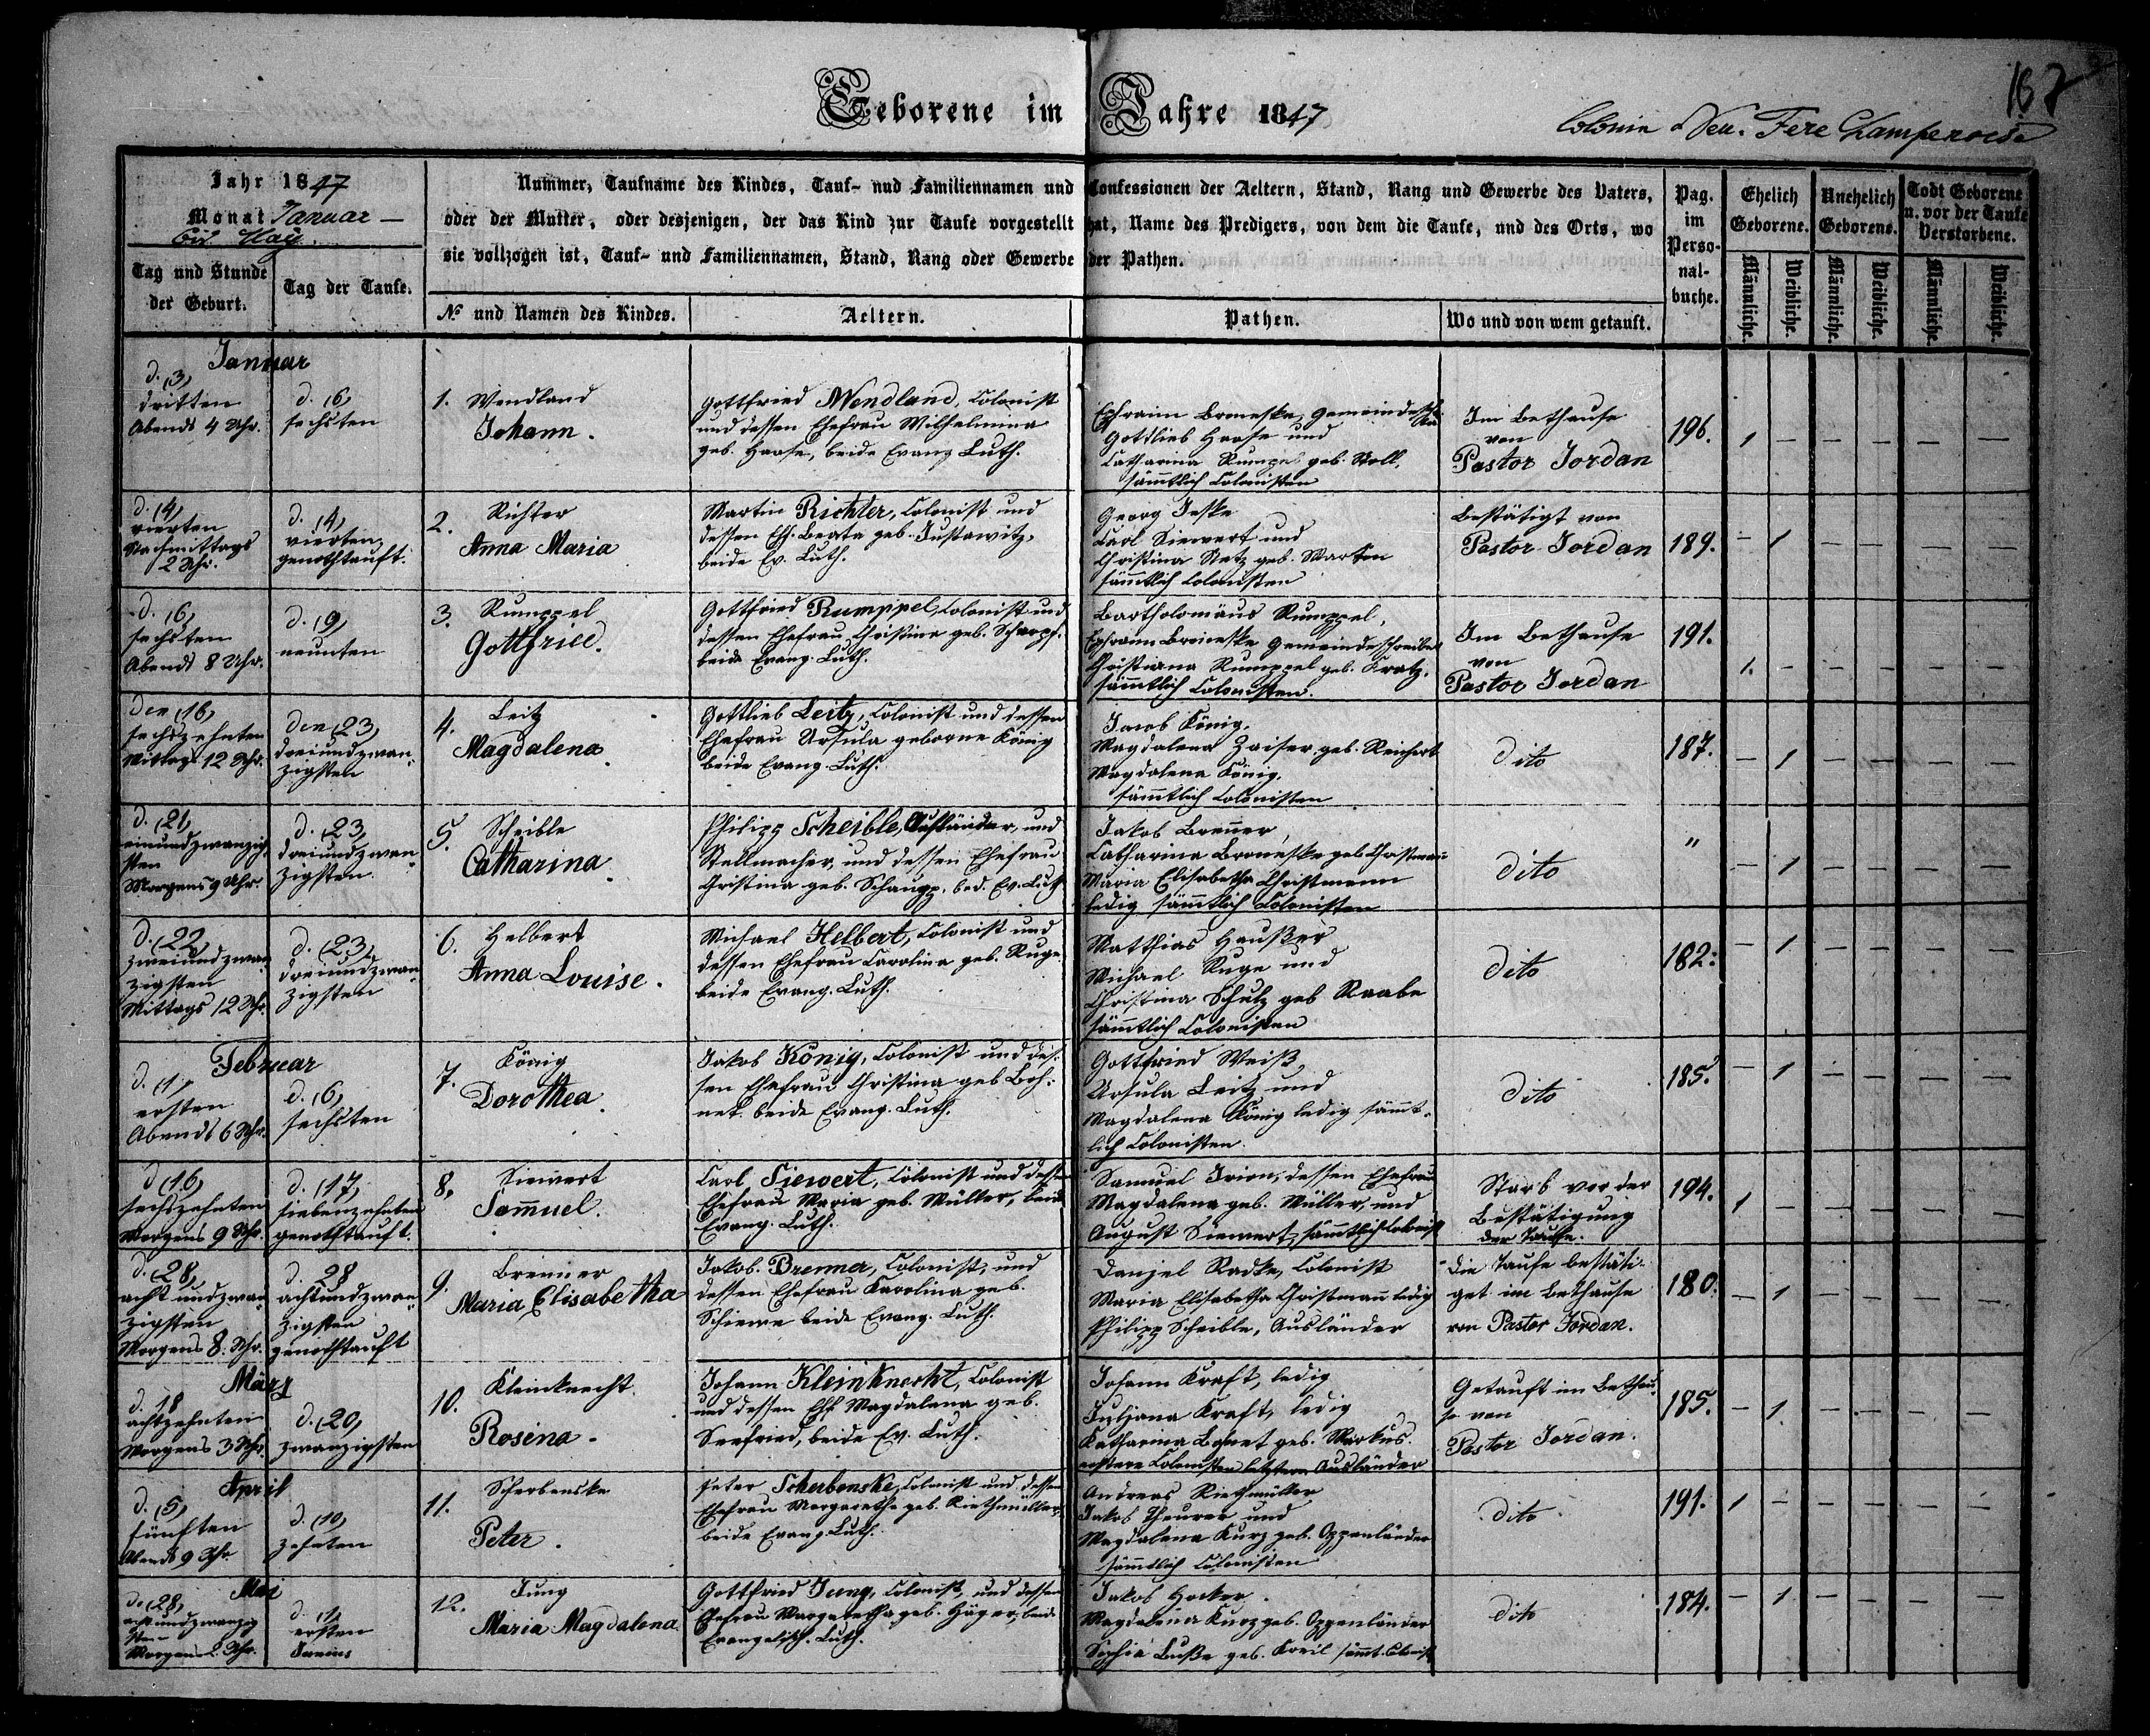 187
Geborene im Jahre 1847
Colonie Neu-Fere Champenoise
Jahr 1847
Monat Januar —
bis May.
Tag und Stunde
der Geburt.
Tag der Taufe.
Nummer, Taufname des Kindes, Tauf- und Familiennamen und Confessionen der Aeltern, Stand, Rang und Gewerbe des Vaters,
oder der Mutter, oder desjenigen, der das Kind zur Taufe vorgestellt hat, Name des Predigers, von dem die Taufe, und des Orts, wo
sie vollzogen ist, Tauf- und Familiennamen, Stand, Rang oder Gewerbe der Pathen.
№ und Namen des Kindes.
Aeltern.
Pathen.
Wo und von wem getauft.
Pag.
im
Perso-
nal-
buche.
Ehelich
Geborene.
Unehelich
Geborene.
Todt Geborene
u. vor der Taufe
Verstorbene.
Männliche.
Weibliche.
Männliche.
Weibliche.
Männliche.
Weibliche.
Januar
d. (3)
dritten
Abends 4 Uhr.
d. (6)
sechsten
1. Wendland
Johann.
Gottfried Wendland, Colonist
und dessen Ehefrau Wilhelmina
geb. Haase, beide Evang Luth.
Ephraim Broneske, Gemeindesch
Gottlieb Haase und
Catharina Rumpel geb. Stoll,
sämtlich Colonisten
Im Bethause
von
Pastor Jordan
196. 1 — — — — —
d. (4)
vierten
Nachmittags
2 Uhr.
d. (4)
vierten
genothtauft.
2. Richter
Anna Maria
Martin Richter, Colonist und
dessen Ehf. Beata geb. Justawitz,
beide Ev. Luth.
Georg Jeske
Carl Siewert und
Christina Netz geb. Marten
sämtlich Colonisten
Bestätigt von
Pastor Jordan
189. — 1 — — — —
d. (6)
sechsten
Abends 8 Uhr.
d. (9)
neunten
3. Rumppel
Gottfried.
Gottfried Rumppel, Colonist und
dessen Ehefrau Christina geb. Scharpf.
beide Evang. Luth.
Bartholomäus Rumppel,
Ephraim Broneske Gemeindeschreiber
Christiana Rumppel geb. Kratz.
sämtlich Colonisten.
Im Bethause
von
Pastor Jordan
191. 1. — — — — —
den (16)
sechszehnten
Mittags 12 Uhr.
den (23)
dreiundzwan-
zigsten
4. Leitz
Magdalena.
Gottlieb Leitz, Colonist und dessen
Ehefrau Ursula geborne König
beide Evang. Luth.
Jacob König,
Magdalena Zaiser geb. Reichert
Magdalena König,
sämtlich Colonisten
dito
187. — 1 — — — —
d. (21)
einundzwanzig-
sten
Morgens 9 Uhr.
d. (23)
dreiundzwan-
zigsten.
5. Scheible
Catharina.
Philipp Scheible, Ausländer, und
Stellmacher, und dessen Ehefrau
Christina geb. Schaupp. bed. Ev. Luth
Jakob Breñer,
Catharina Broneske geb. Christmañ
Maria Elisabetha Christmann
ledig sämtlich Colonisten
dito
" — 1 — — — —
d. (22)
zweiundzwan-
zigsten
Mittags 12 Uhr.
d. (23)
dreiundzwan-
zigsten
6. Helbert
Anna Louise.
Michael Helbert, Colonist und
dessen Ehefrau Carolina geb. Ruge
beide Evang. Luth.
Matthias Haußer
Michael Ruge und
Christina Schulz geb Raabe
sämtlich Colonisten
dito
182. — 1 — — — —
Februar
d. (1)
ersten
Abends 6 Uhr.
d. (6)
sechsten
7. König
Dorothea.
Jakob König, Colonist und des-
sen Ehefrau Christina geb Boh-
net. beide Evang. Luth.
Gottfried Weiß
Ursula Leitz und
Magdalena König ledig sämt-
lich Colonisten.
dito
185. — 1 — — — —
d (16)
sechszehnten
Morgens 9 Uhr.
d. (17)
siebenzehnten
genothtauft.
8. Siewert
Samuel.
Carl Siewert, Colonist und dessen
Ehefrau Maria geb. Müller, beide
Evang. Luth.
Samuel Irion, dessen Ehefrau
Magdalena geb. Müller, und
August Siewert, sämtlich Colonist
Starb vor der
Bestätigung
der Taufe.
194. 1 — — — — —
d. (28)
achtundzwan-
zigsten
Morgens 8. Uhr.
d. 28
achtundzwan-
zigsten
genothtauft
9. Brenner
Maria Elisabetha
Jakob. Brenner, Colonist, und
dessen Ehefrau Karolina geb.
Schiewe beide Evang. Luth.
Danjel Radke, Colonist
Maria Elisabetha Christmañ ledig
Philipp Scheible, Ausländer
Die Taufe bestäti-
get im Bethause
von Pastor Jordan.
180. — 1 — — — —
März
d. 18
achtzehnten
Morgens 3 Uhr.
d. (20)
zwanzigsten
10. Kleinknecht.
Rosina.
Johann Kleinknecht, Colonist
und dessen Ehf. Magdalena geb.
Seefried, beide Ev. Luth.
Johann Kraft, ledig
Juljana Kraft, ledig
Katharina Bohnet geb. Markus.
erstere Colonisten letztere Ausländer
Getauft im Bethau-
se von
Pastor Jordan.
185. — 1. — — — —
April
d. (5)
fünften
Abends 9 Uhr
d. (10)
zehnten
11. Scherbenske
Peter.
Peter Scherbenske, Colonist und dessen
Ehefrau Margaretha geb. Riethmüller,
beide Evang. Luth.
Andreas Riethmüller
Jakob Theurer und
Magdalena Kurz geb. Oppenländer
sämtlich Colonisten
dito
191. 1 — — — — —
Mai
d. (28)
achtundzwanzig
sten
Morgens 2 Uhr.
d. (1)
ersten
Junius
12. Jung
Maria Magdalena.
Gottfried Jung, Colonist, und dessen
Ehefrau Margaretha geb. Häger, beide
Evangelisch. Luth.
Jakob Hocker.
Magdalena Kurz geb. Oppenländer
Sophia Buße geb. sämt. Colonist
dito
184. — 1 — — — —